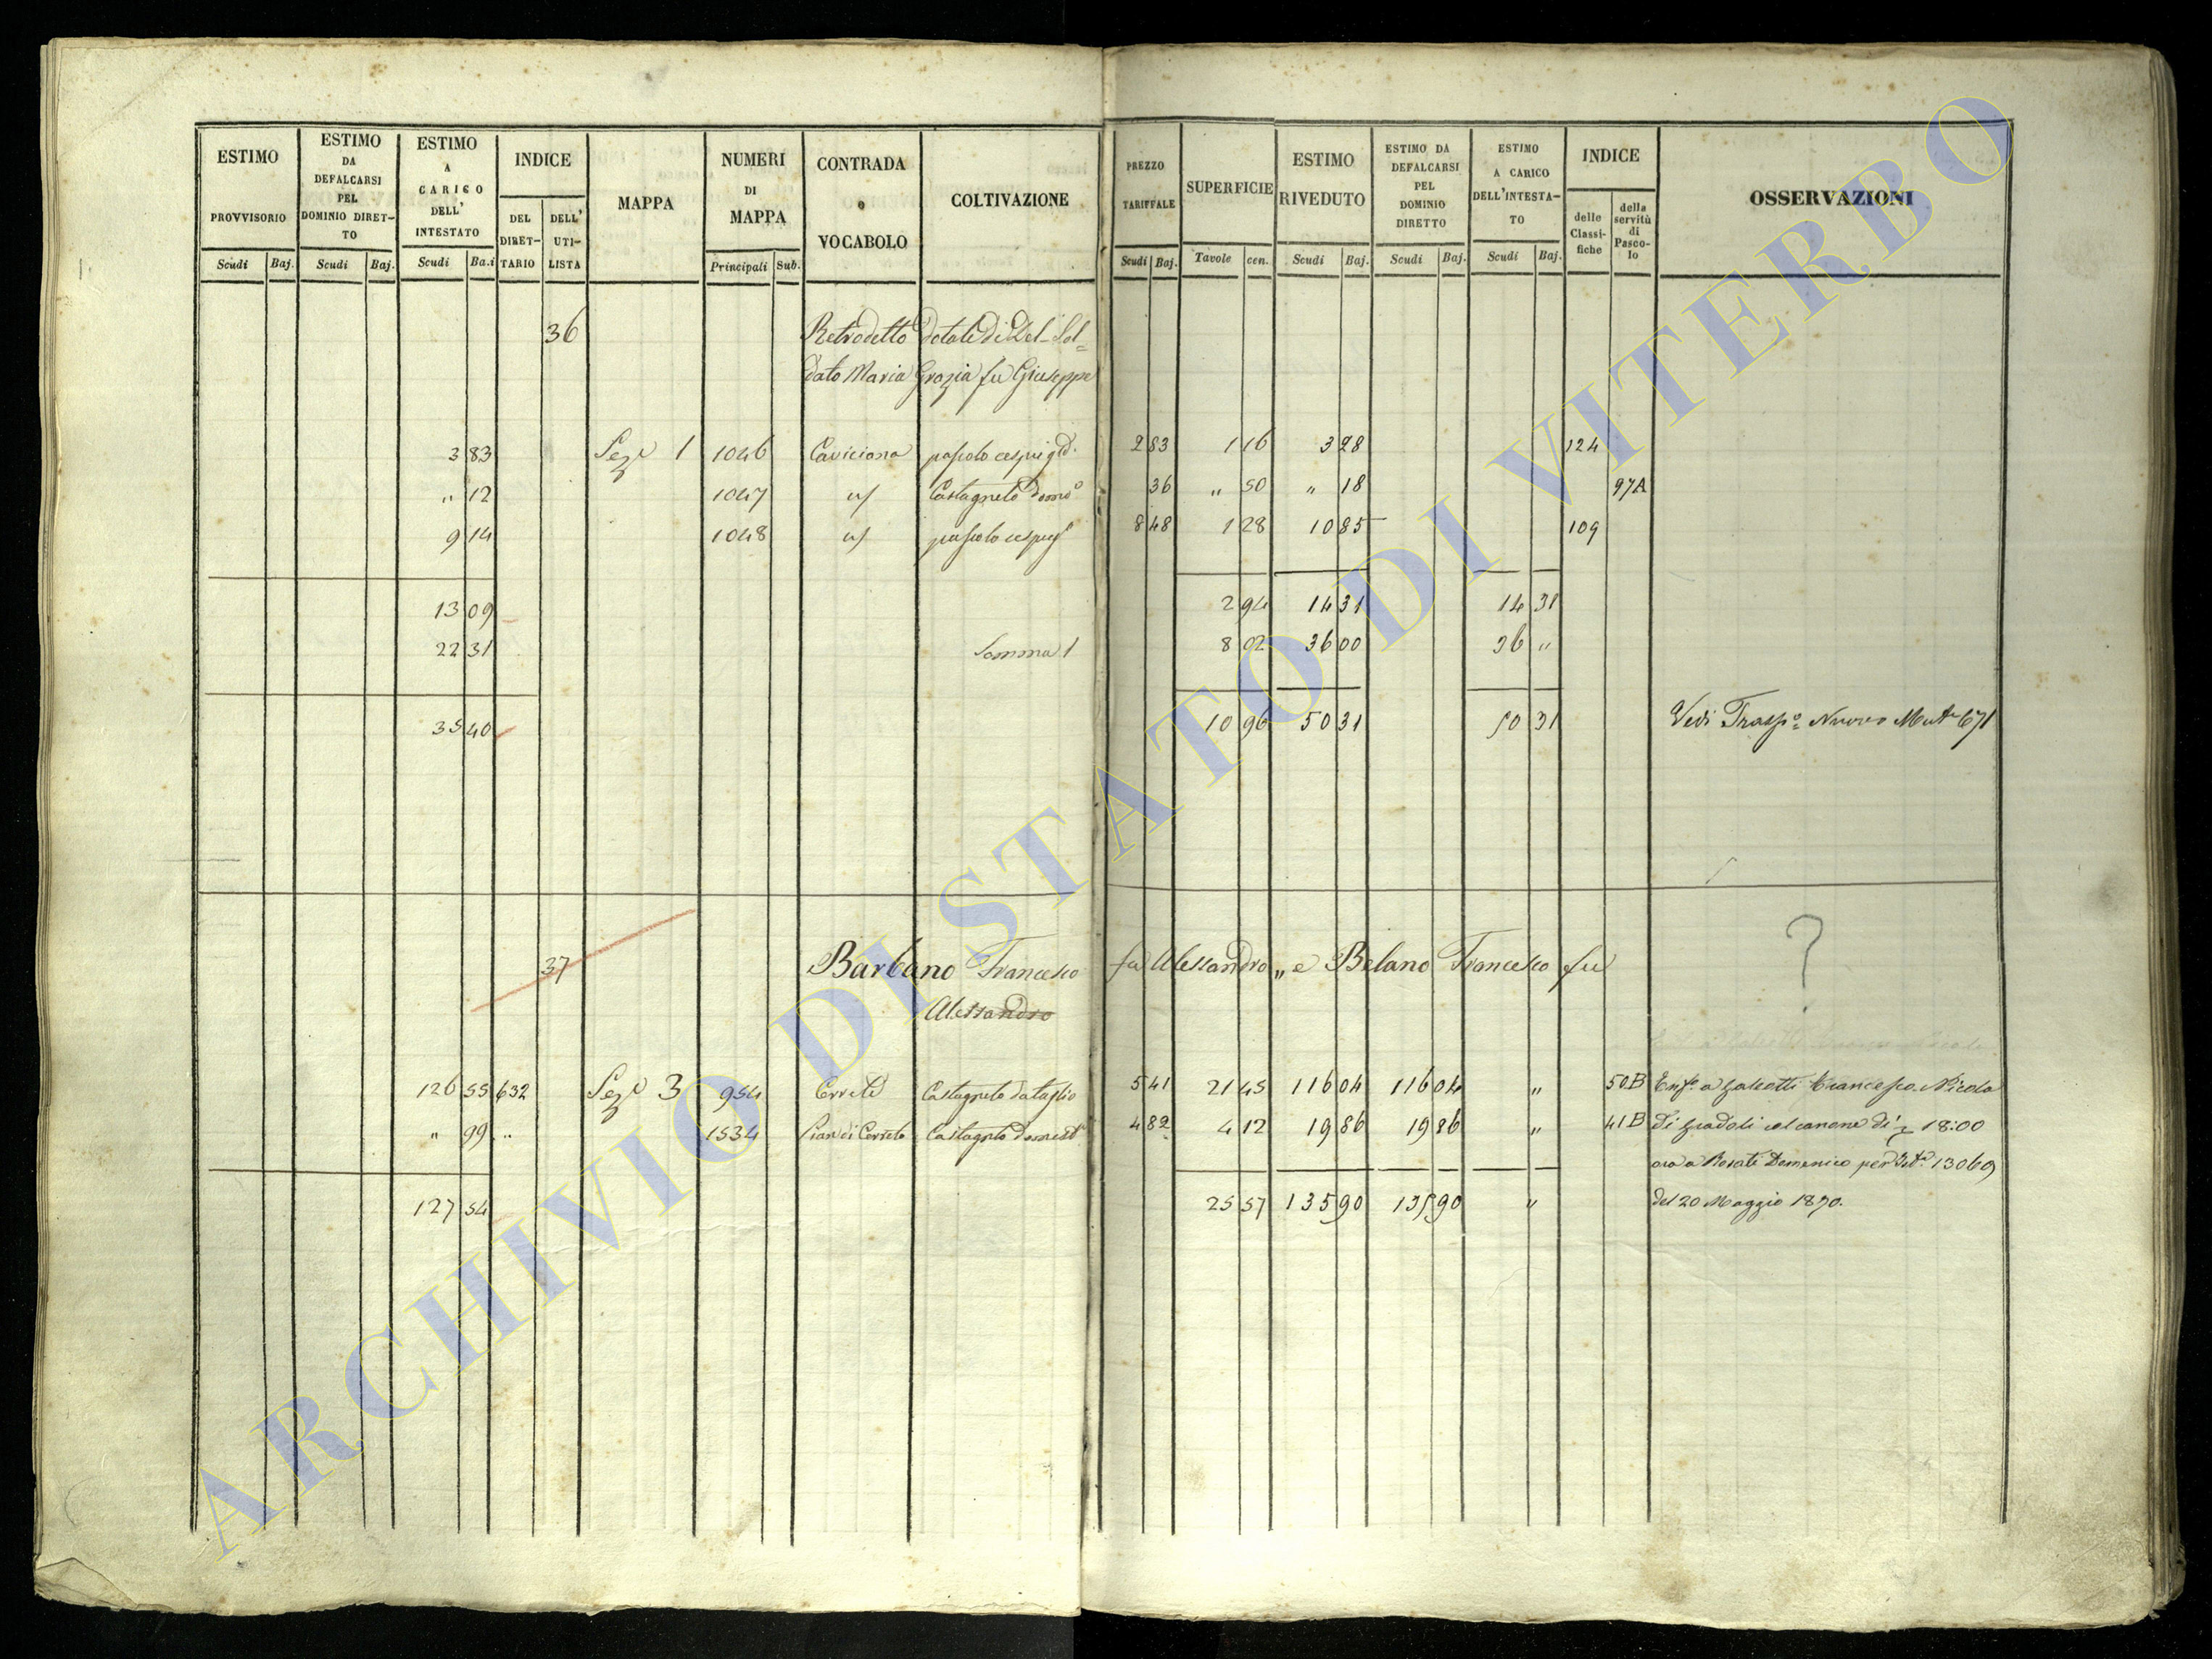 ESTIMO PROVVISORIO Scudi Baj.
ESTIMO DA DEFALCARSI PEL DOMINIO DIRET- TO Scudi Baj.
ESTIMO A CARICO DELL' INTESTATO Scudi Ba.i
INDICE DEL DIRET- TARIO DELL' UTI- LISTA
MAPPA
NUMERI DI MAPPA Principali Sub.
CONTRADA o VOCABOLO
COLTIVAZIONE
PREZZO TARIFFALE Scudi Baj.
SUPERFICIE Tavole cen.
ESTIMO RIVEDUTO Scudi Baj.
ESTIMO DA DEFALCARSI PEL DOMINIO DIRETTO Scudi Baj.
ESTIMO A CARICO DELL'INTESTA- TO Scudi Baj.
INDICE delle Classi- fiche della servitù di Pasco- lo
OSSERVAZIONI
36 Retrodetto dotale di Del Sol=
dato Maria Grazia fu Giuseppe
3 83 Sez.e 1 1046 Caviciona pascolo cespugd. 2 83 1 16 3 28 124
" 12 1047 Castagneto domo 36 " 50 " 18 97A
9 14 1048 pascolo cespug 8 48 1 28 10 85 109
13 09 2 94 14 31 14 31
22 31 Somma 1 8 02 36 00 36 "
35 40 10 96 50 31 50 31 Vedi Traspo Nuovo Mut. 671
?
37 Barbano Francesco fu Alessandro " e Belano Francesco fu
Alessandro
126 55 632 Sez.e 3 954 Cerreto Castagneto dataglio 5 41 21 45 116 04 116 04 " 50B Enf.a a Galeotti Francesco Nicola
" 99 " 1534 Pian di Cerreto Castagneto domest 4 82 4 12 19 86 19 86 " 41B Di Gradoli col canone di 18:00
ora a Rosati Domenico per 13069
127 54 25 57 135 90 135 90 " del 20 Maggio 1870.
ARCHIVIO DI STATO DI VITERBO